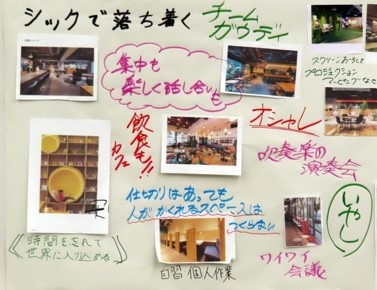 シックで落ち着く
チーム
ガウディ
集中も
楽しく話し合いも
スクリーンおろして
プロジェクション
マッピングなど
飲食も!!
カフェ
オシャレ
吹奏楽の
演奏会
仕切りはあっても
人がかくれるスペースは
つくらない
いやし
時間を忘れて
世界に入り込める
自習 個人作業
ワイワイ
会議